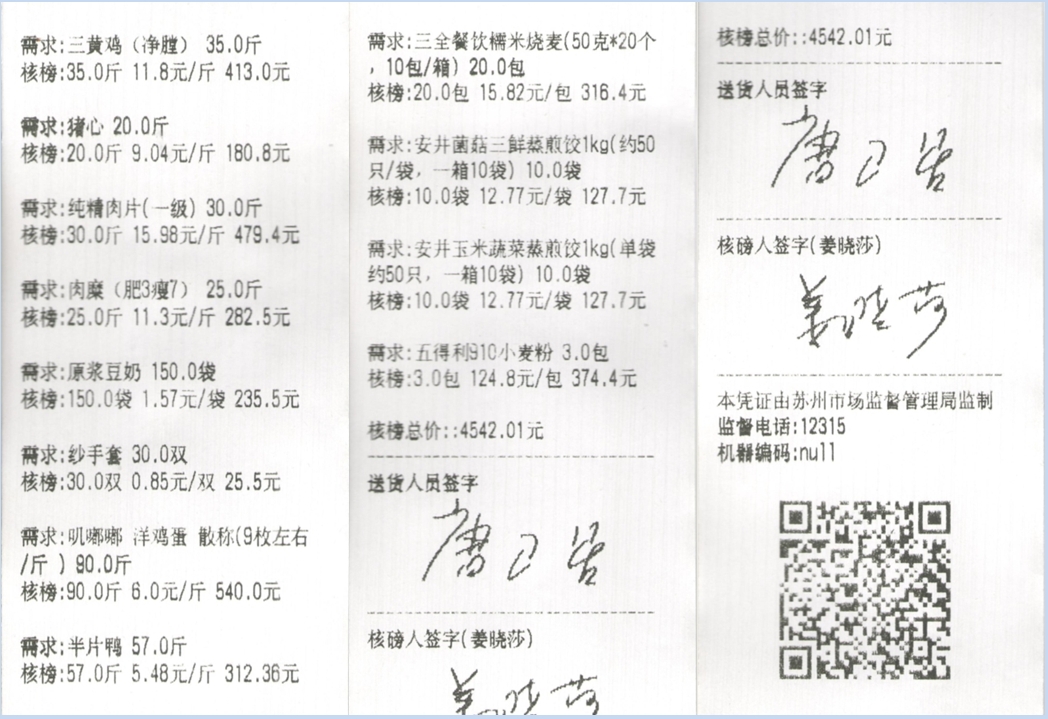 需求:三黄鸡（净膛） 35.0斤
核榜:35.0斤 11.8元/斤 413.0元
需求:猪心 20.0斤
核榜:20.0斤 9.04元/斤 180.8元
需求:纯精肉片(一级) 30.0斤
核榜:30.0斤 15.98元/斤 479.4元
需求:肉糜（肥3瘦7） 25.0斤
核榜:25.0斤 11.3元/斤 282.5元
需求:原浆豆奶 150.0袋
核榜:150.0袋 1.57元/袋 235.5元
需求:纱手套 30.0双
核榜:30.0双 0.85元/双 25.5元
需求:叽嘟嘟 洋鸡蛋 散称(9枚左右
/斤 ) 90.0斤
核榜:90.0斤 6.0元/斤 540.0元
需求:半片鸭 57.0斤
核榜:57.0斤 5.48元/斤 312.36元
需求:三全餐饮糯米烧麦(50克*20个
，10包/箱) 20.0包
核榜:20.0包 15.82元/包 316.4元
需求:安井菌菇三鲜蒸煎饺1kg(约50
只/袋，一箱10袋) 10.0袋
核榜:10.0袋 12.77元/袋 127.7元
需求:安井玉米蔬菜蒸煎饺1kg(单袋
约50只，一箱10袋) 10.0袋
核榜:10.0袋 12.77元/袋 127.7元
需求:五得利910小麦粉 3.0包
核榜:3.0包 124.8元/包 374.4元
核榜总价::4542.01元
送货人员签字
核磅人签字(姜晓莎)
姜晓莎
核榜总价::4542.01元
送货人员签字
核磅人签字(姜晓莎)
姜晓莎
本凭证由苏州市场监督管理局监制
监督电话:12315
机器编码:null